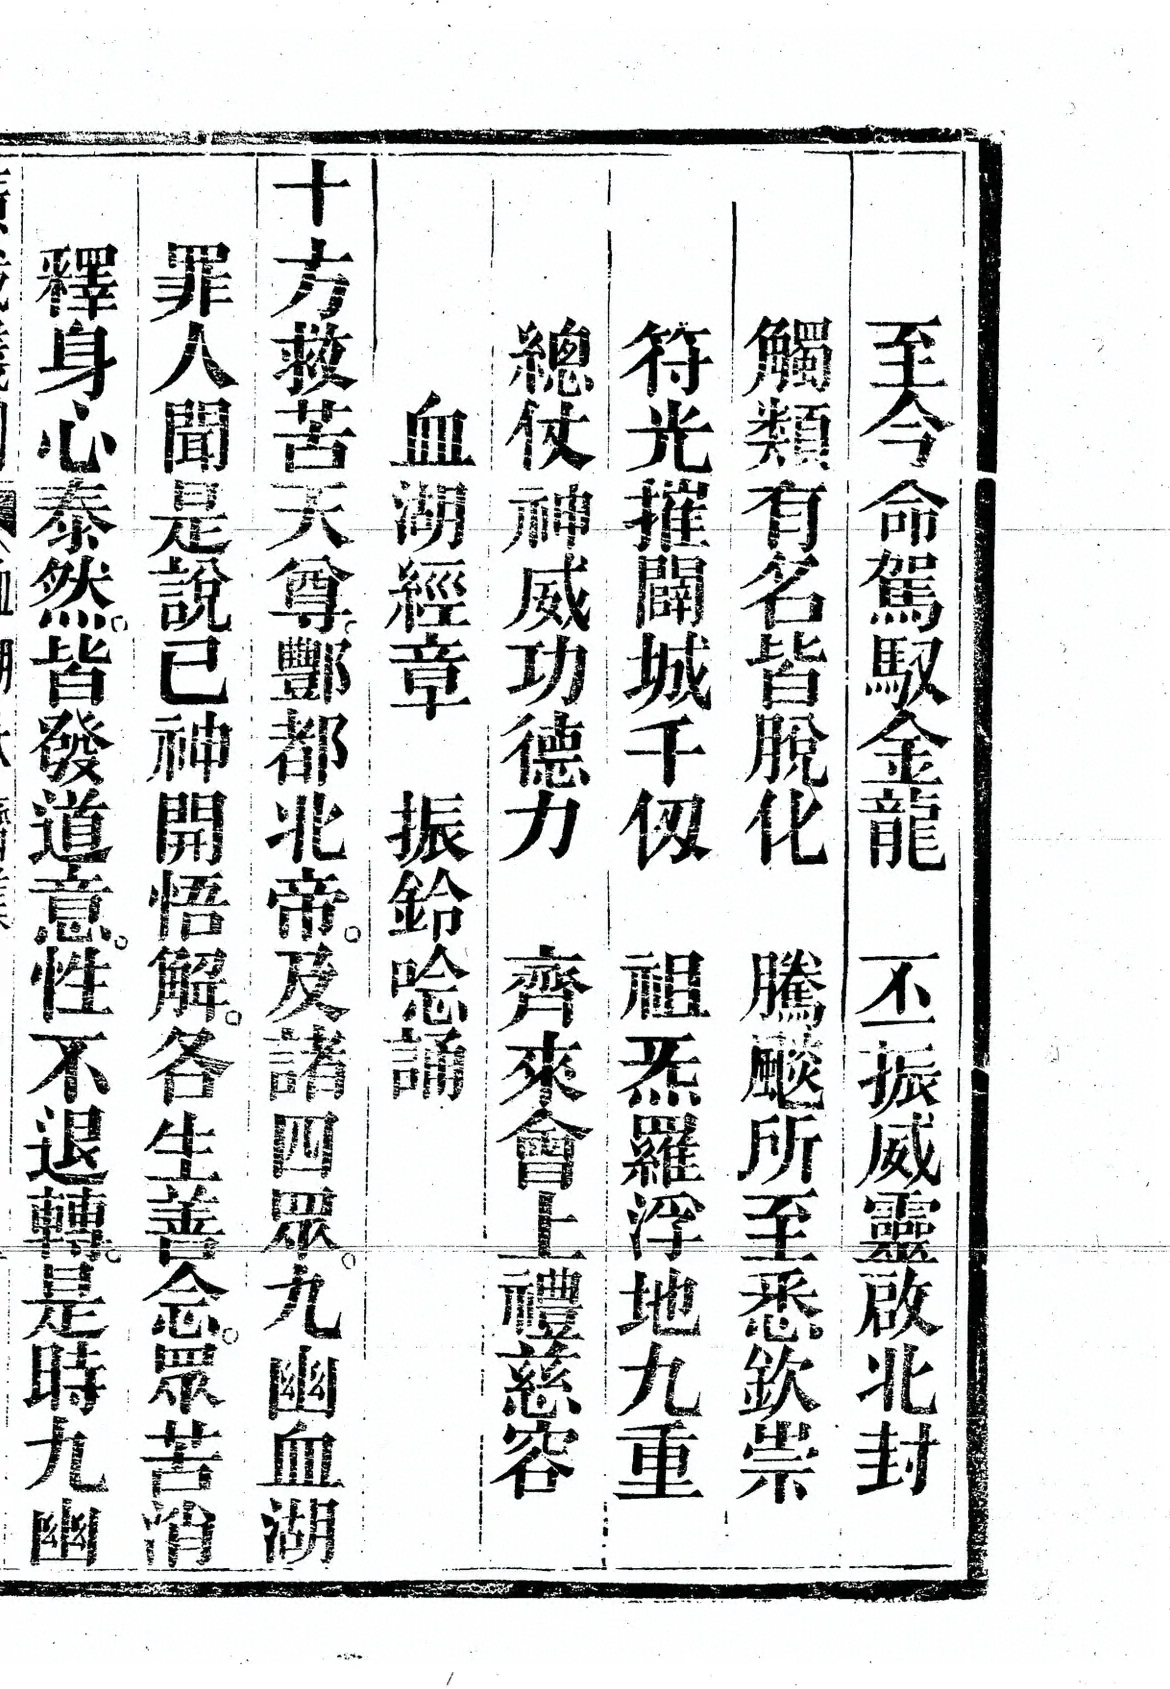 至今命駕馭金龍　丕振威靈啟北封
觸類有名皆脫化　騰飈所至悉欽崇
符光摧闢城千仞　祖炁羅浮地九重
總仗神威功德力　齊來會上禮慈容
血湖經章　振鈴唸誦
十方救苦天尊。酆都北帝。及諸四眾。九幽血湖
罪人聞是說已神開悟解。各生善念。眾苦消
釋身心泰然。皆發道意。性不退轉。是時九幽